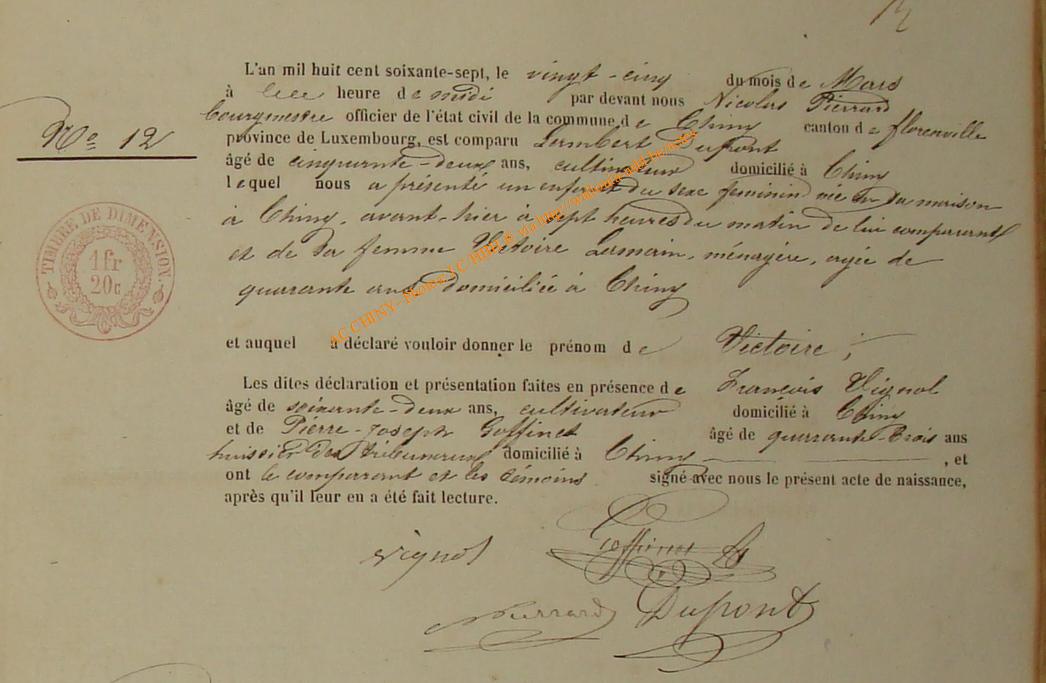 Nº 12
TIMBRE DE DIMENSION
1 fr
20c
L'an mil huit cent soixante-sept, le vingt-cinq du mois de Mars
à heure de midi par devant nous Nicolas Pierrard
bourgmestre officier de l'état civil de la commune de Chiny canton de florenville
province de Luxembourg, est comparu Lambert Dupont
âgé de cinquante-deux ans, cultivateur domicilié à Chiny
lequel nous a présenté un enfant du sexe feminin née en sa maison
à Chiny, avant-hier à sept heures du matin de lui comparant
et de sa femme Victoire Lamain, ménagère, agée de
quarante ans domiciliée à Chiny
et auquel a déclaré vouloir donner le prénom de Victoire;
Les dites déclaration et présentation faites en présence de François Vignol
âgé de soixante-deux ans, cultivateur domicilié à Chiny
et de Pierre-Joseph Goffinet âgé de quarante-trois ans
huissier des tribunaux domicilié à Chiny , et
ont le comparant et les témoins signé avec nous le présent acte de naissance,
après qu'il leur en a été fait lecture.
Vignol Goffinet
Pierrard Dupont
AC CHINY - Photos J.C HIBLE via